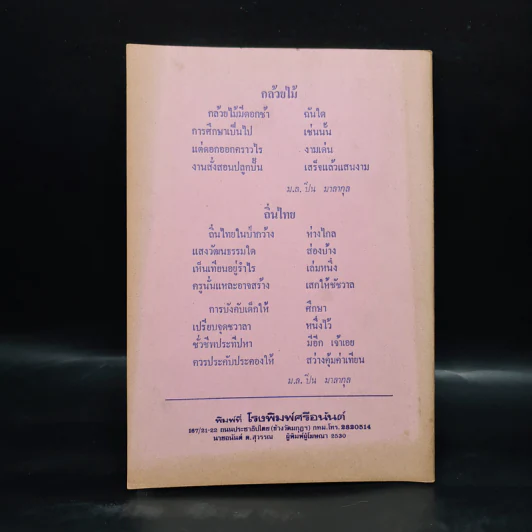 กล้วยไม้
กล้วยไม้มีดอกช้า ฉันใด
การศึกษาเป็นไป เช่นนั้น
แต่ดอกออกคราวไร งามเด่น
งานสั่งสอนปลูกปั้น เสร็จแล้วแสนงาม
ม.ล. ปิ่น มาลากุล
ถิ่นไทย
ถิ่นไทยในป่ากว้าง ห่างไกล
แสงวัฒนธรรมใด ส่องบ้าง
เห็นเทียนอยู่รำไร เล่มหนึ่ง
ครูนั่นแหละอาจสร้าง เสกให้ชัชวาล
การบังคับเด็กให้ ศึกษา
เปรียบจุดชวาลา หนึ่งไว้
ชั่วชีพประทีปหา มีอีก เจ้าเอย
ควรประคับประคองให้ สว่างคุ้มค่าเทียน
ม.ล. ปิ่น มาลากุล
พิมพ์ที่ โรงพิมพ์ศรีอนันต์
167/21-22 ถนนประชาธิปไตย (ข้างวัดมกุฎฯ) กทม. โทร. 2820514
นายอนันต์ ต. สุวรรณ ผู้พิมพ์ผู้โฆษณา 2530